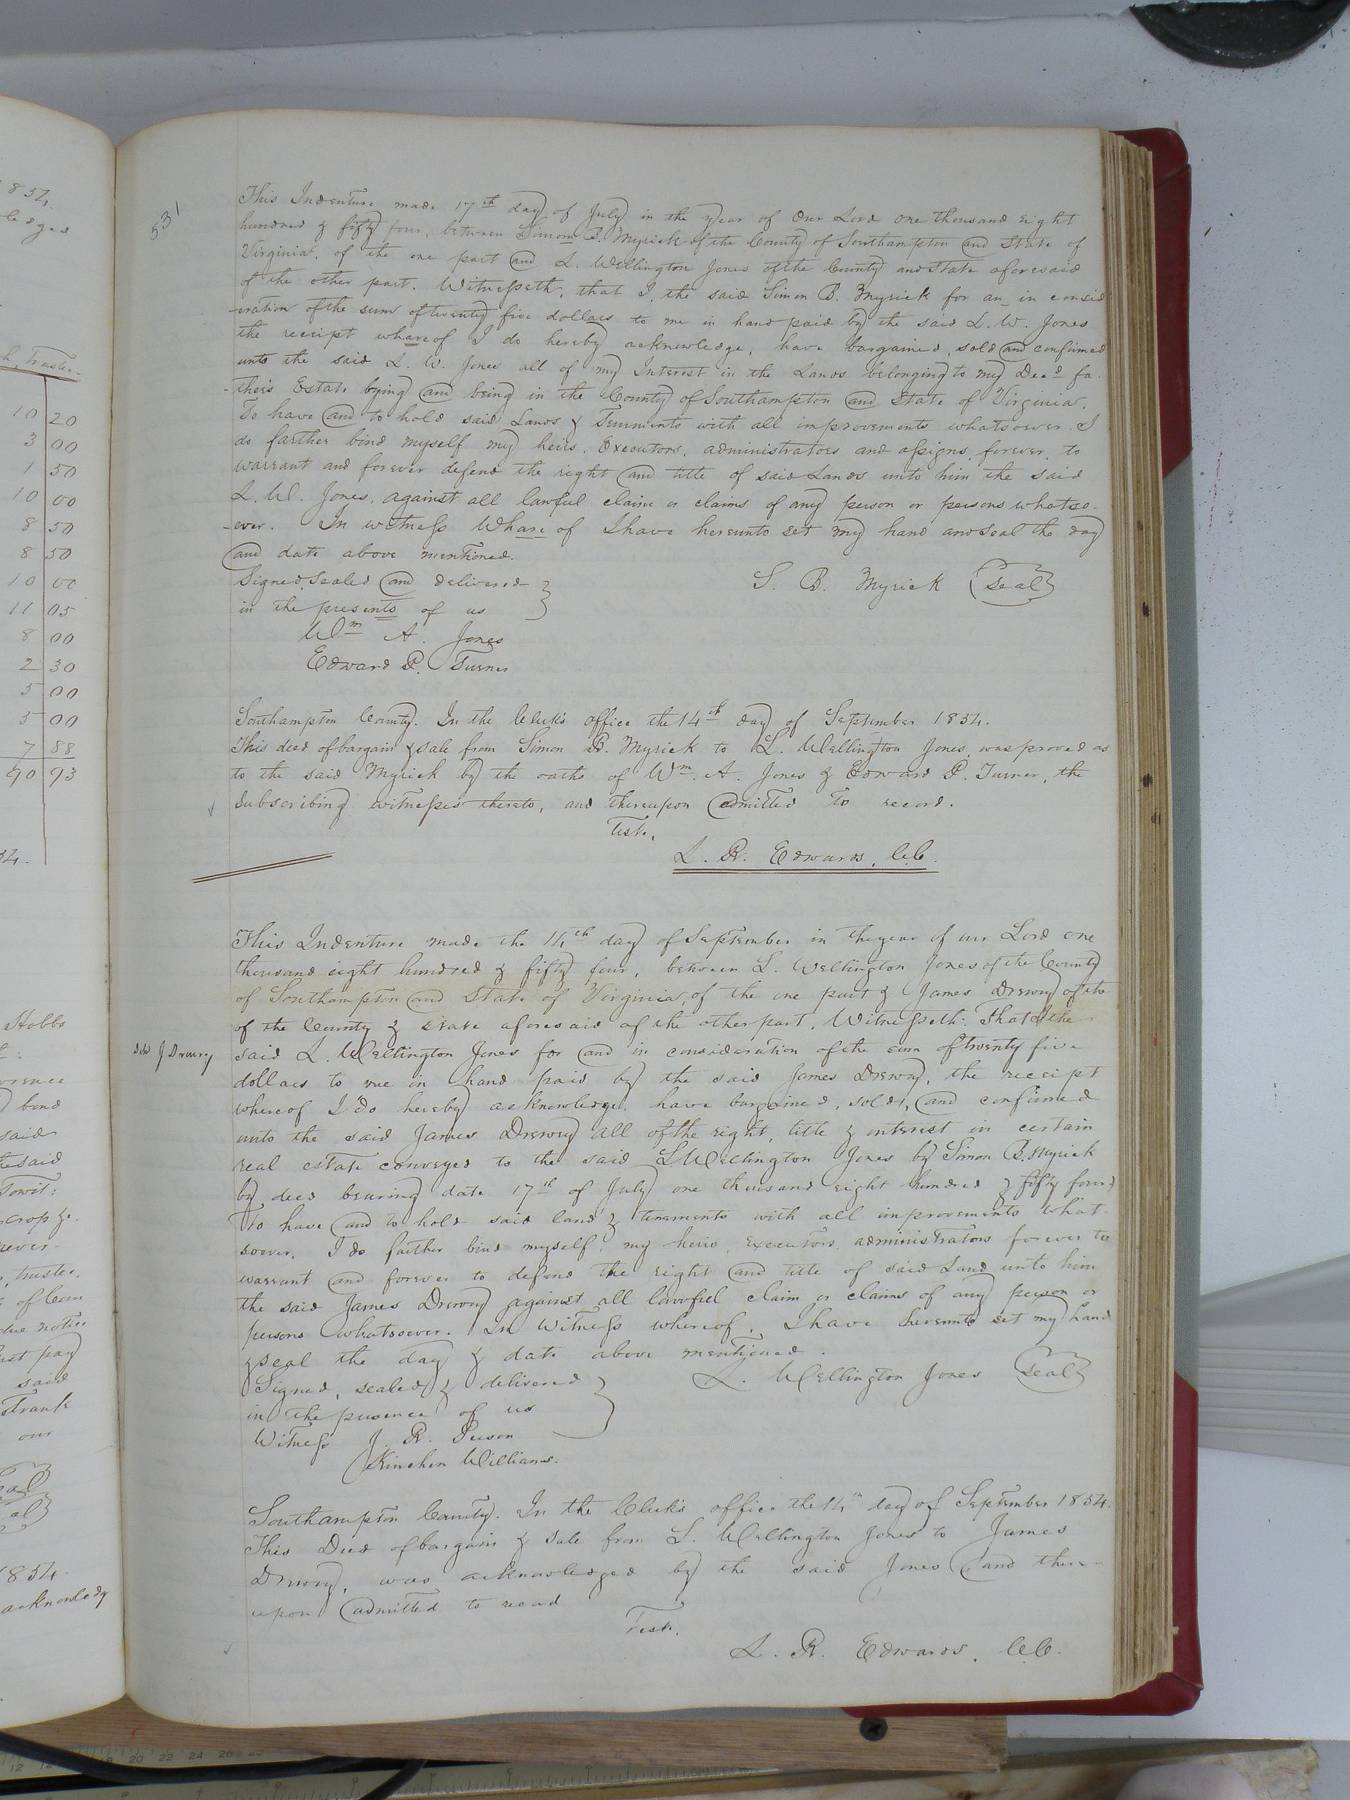 834.
ledges
h, Trustee.
10 20
3 00
1 50
10 00
8 50
8 50
10 00
11 05
8 00
2 30
5 00
5 00
7 88
90 93
54.
Hobbs
bend
said
the said
Towit:
crop &c.
never-
, trustee,
due notice
just pay
said
Strank
our
1854.
acknowledg
531
This Indenture made 17th day of July in the year of our Lord one thousand eight
hundred & fifty four, between Simon B. Myrick of the County of Southampton and State of
Virginia, of the one part and L. Wellington Jones of the County and State aforesaid
of the other part. Witnesseth, that I, the said Simon B. Myrick for an in consid
-eration of the sum of twenty five dollars to me in hand paid by the said L. W. Jones
the receipt whareof I do hereby acknowledge, have bargained, sold and confirmed
unto the said L. W. Jones all of my Interest in the Lands belonging to my Decd fa-
-ther's Estate lying and being in the County of Southampton and State of Virginia.
To have and to hold said Lands & Tennments with all improvements whatsoever. I
do farther bind myself my heirs, Executors, administrators and assigns, forever, to
warrant and forever defend the right and title of said Lands unto him the said
L. W. Jones, against all lawful claim or claims of any person or persons whatso-
-ever. In witness Whare of I have hereunto set my hand and seal the day
and date above mentioned.
Signed, sealed and delivered
S. B. Myrick Seal
in the presents of us
Wm A. Jones
Edward P. Turner
Southampton County. In the Clerk's office the 14th day of September 1854.
This deed of bargain & sale from Simon B. Myrick to L. Wellington Jones, was proved as
to the said Myrick by the oaths of Wm. A. Jones & Edward P. Turner, the
Subscribing witnesses thereto, and thereupon admitted to record.
Teste.
L. R. Edwards, C.C.
This Indenture made the 14th day of September in the year of our Lord one
thousand eight hundred & fifty four, between L. Wellington Jones of the County
of Southampton and State of Virginia, of the one part & James Drewry of the
of the County & State aforesaid of the other part. Witnesseth: That I the
J Drewry
said L. Wellington Jones for and in consideration of the sum of twenty five
dollars to me in hand paid by the said James Drewry, the receipt
whereof I do hereby acknowledge, have bargained, sold, and confirmed
unto the said James Drewry all of the right, title & interest in certain
real estate conveyed to the said L Wellington Jones by Simon B. Myrick
by deed bearing date 17th of July one thousand eight hundred & fifty four,
To have and to hold said land & tenements with all improvements what-
soever. I do farther bind myself, my heirs, executors, administrators forever to
warrant and forever to defend the right and title of said Land unto him
the said James Drewry against all lawful claim or claims of any person or
persons whatsoever. In Witness whereof, I have hereunto set my hand
& seal the day & date above mentioned.
Signed, sealed & delivered
L. Wellington Jones Seal
in the presence of us
Witness J. R. Person
Kinchen Williams.
Southampton County. In the Clerk's office the 14th day of September 1854.
This Deed of bargain & sale from L. Wellington Jones to James
Drewry, was acknowledged by the said Jones and there-
upon admitted to record
Teste.
L. R. Edwards, C.C.